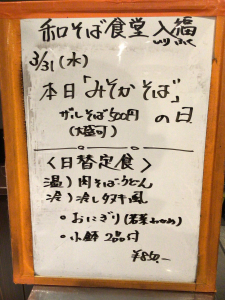 和そば食堂 入福
3/31(水)
本日「みそかそば」の日
ザルそば500円
(大盛可)
〈日替定食〉
温)肉そばorうどん
冷)冷したぬき風
・おにぎり(若菜わかめ)
・小鉢 2品付
¥850.-